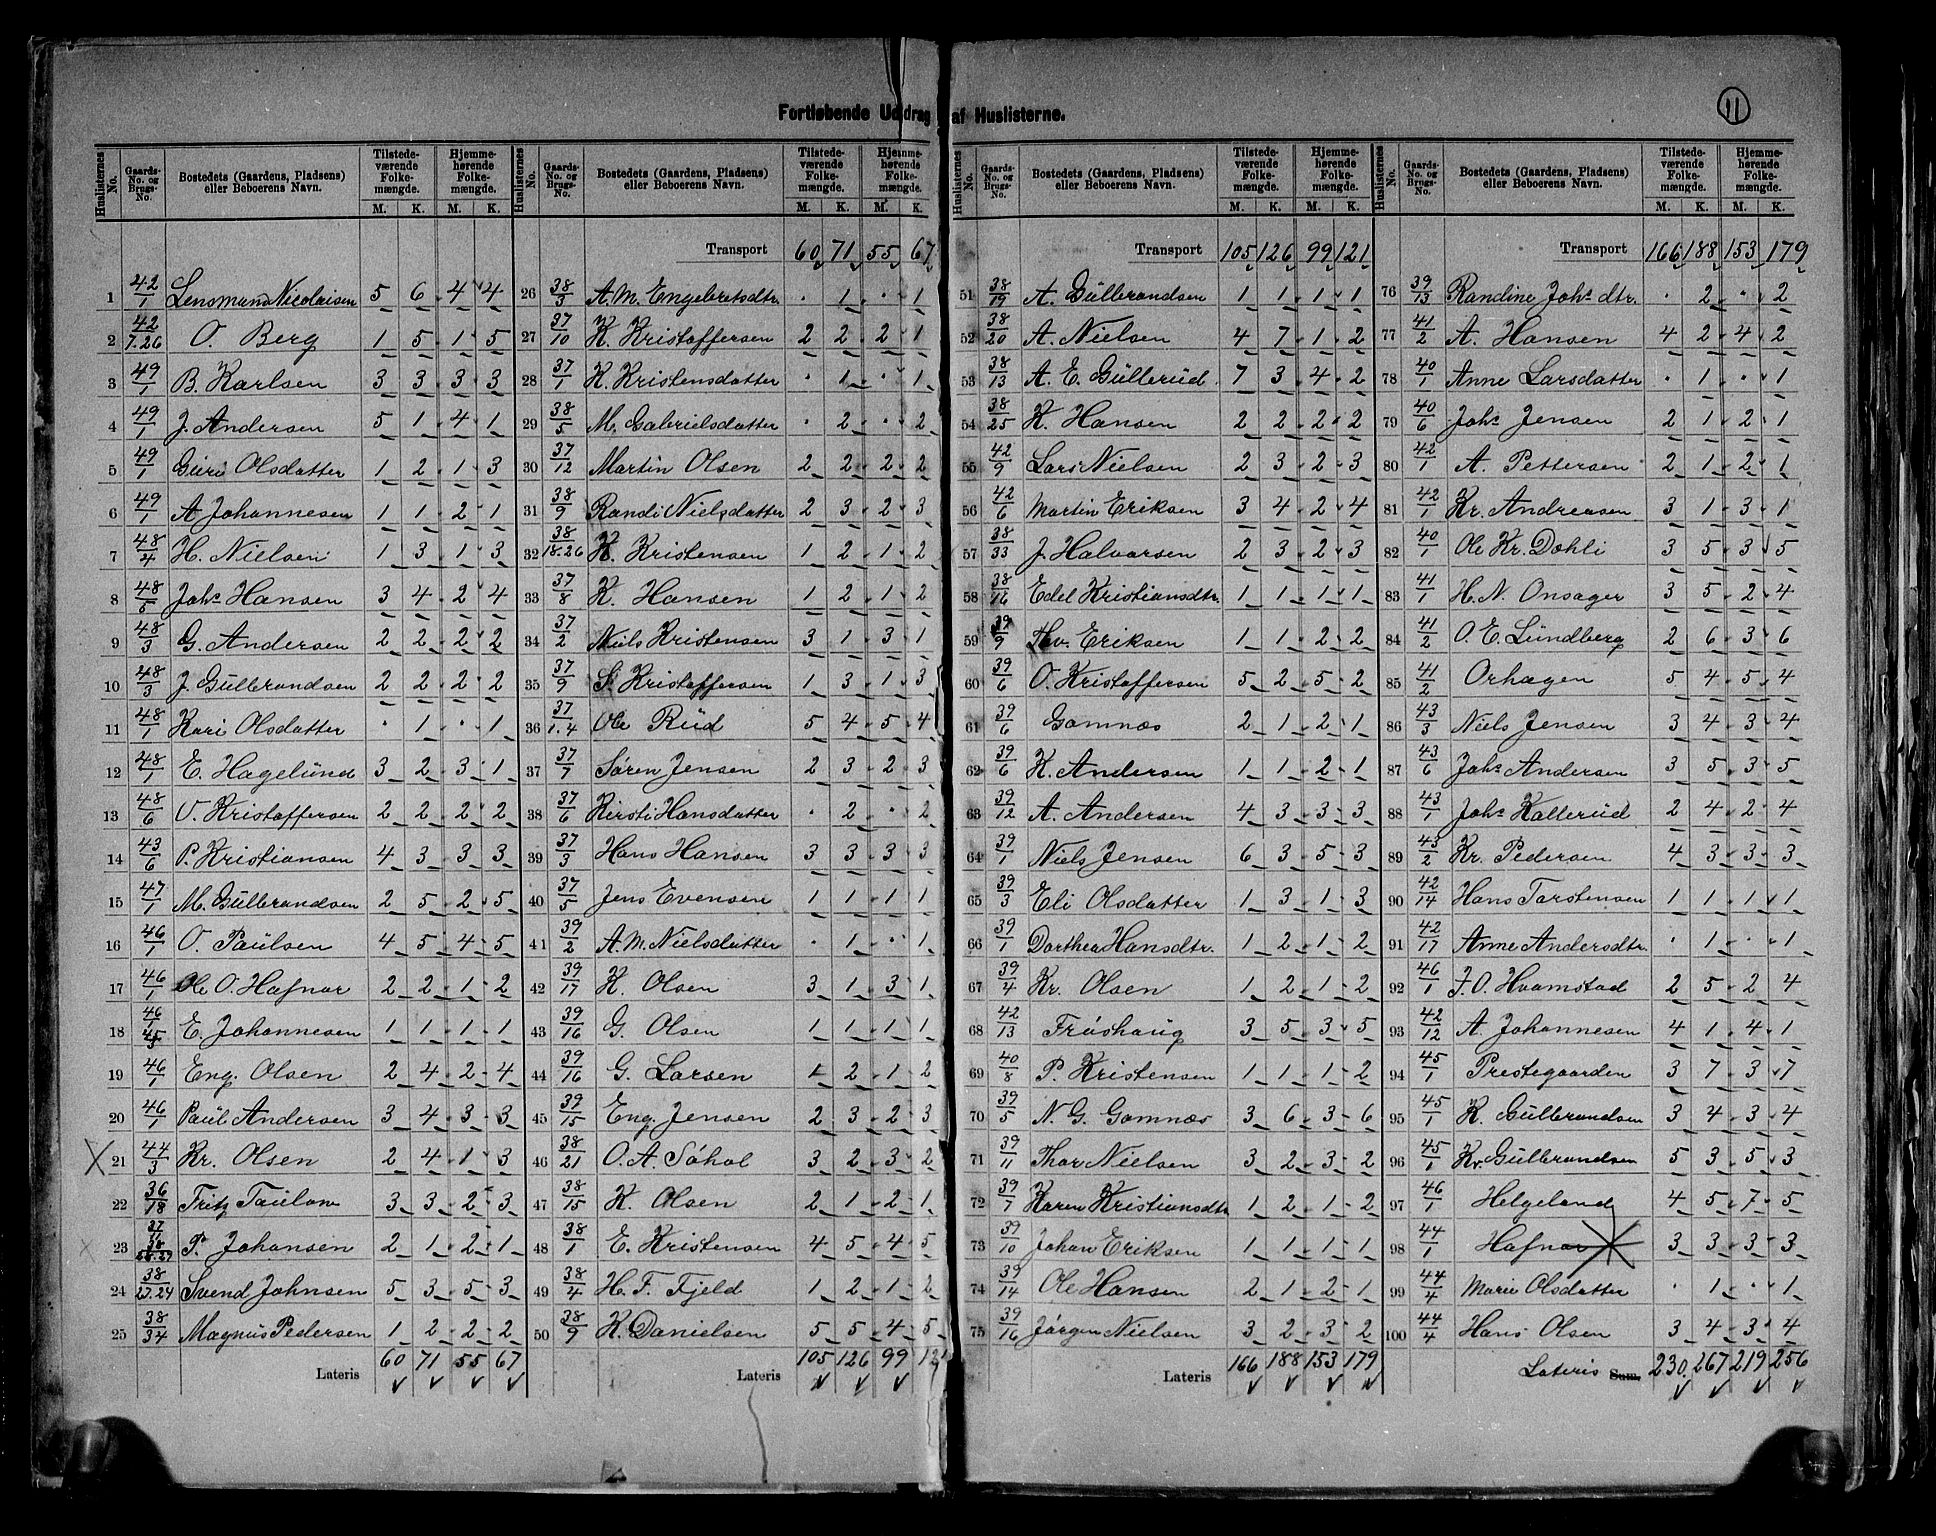 11
Fortløbende Uddrag af Huslisterne.
Huslisternes No. | Gaards-No. og Brugs-No. | Bostedets (Gaardens, Pladsens) eller Beboerens Navn. | Tilstedeværende Folkemængde. M. K. | Hjemmehørende Folkemængde. M. K.
Transport
1 42/1 Lensmand Nicolaisen 5 6 4 4
2 42/7.26 O. Berg 1 5 1 5
3 49/1 B. Karlsen 3 3 3 3
4 49/1 J. Andersen 5 1 4 1
5 49/1 Guri Olsdatter 1 2 1 3
6 49/1 A Johannesen 1 1 2 1
7 48/4 H. Nielsen 1 3 1 3
8 48/5 Johs Hansen 3 4 2 4
9 48/3 G. Andersen 2 2 2 2
10 48/3 J. Gulbrandsen 2 2 2 2
11 48/1 Kari Olsdatter . 1 . 1
12 48/1 E. Hagelund 3 2 3 1
13 48/6 O. Kristoffersen 2 2 2 2
14 43/6 P. Kristiansen 4 3 3 3
15 47/1 M. Gulbrandsen 2 5 2 5
16 46/1 O. Paulsen 4 5 4 5
17 46/1 Ole O. Hafnor 2 2 1 2
18 46/1 45/3 E. Johannesen 1 1 1 1
19 46/1 Eng. Olsen 2 4 2 4
20 46/1 Paul Andersen 3 4 3 3
X 21 44/3 Kr. Olsen 2 4 1 3
22 36/18 Fritz Taulow 3 3 2 3
x 23 37/11 38 P. Johansen 2 1 2 1
24 38/23.24 Svend Johnsen 5 3 5 3
25 38/34 Magnus Pedersen 1 2 2 2
Lateris 60 71 55 67
Huslisternes No. | Gaards-No. og Brugs-No. | Bostedets (Gaardens, Pladsens) eller Beboerens Navn. | Tilstedeværende Folkemængde. M. K. | Hjemmehørende Folkemængde. M. K.
Transport 60 71 55 67
26 38/3 A. M. Engebretsdtr. . 1 . 1
27 37/10 K. Kristoffersen 2 2 2 1
28 37/1 K. Kristensdatter . 1 . 1
29 38/5 M. Gabrielsdatter . 2 . 2
30 37/12 Martin Olsen 2 2 2 2
31 38/9 Randi Nielsdatter 2 3 2 3
32 38/18.26 K. Kristensen 1 2 1 2
33 37/8 K. Hansen 1 2 1 2
34 37/2 Niels Kristensen 3 1 3 1
35 37/9 S. Kristoffersen 1 3 1 3
36 37/1.4 Ole Rud 5 4 5 4
37 37/7 Søren Jensen 2 3 2 3
38 37/6 Kirsti Hansdatter . 2 . 2
39 37/3 Hans Hansen 3 3 3 3
40 37/5 Jens Evensen 1 1 1 1
41 39/2 A. M. Nielsdatter . 1 . 1
42 39/17 K. Olsen 3 1 3 1
43 39/16 G. Olsen 1 1 1 1
44 39/16 G. Larsen 1 2 1 2
45 39/15 Eng. Jensen 2 3 2 3
46 38/21 O. A. Søhol 3 2 3 2
47 38/15 K. Olsen 2 1 2 1
48 38/1 E. Kristensen 4 5 4 5
49 38/4 H. F. Fjeld 1 2 1 2
50 38/9 K. Danielsen 5 5 4 5
Lateris 105 126 99 12
Huslisternes No. | Gaards-No. og Brugs-No. | Bostedets (Gaardens, Pladsens) eller Beboerens Navn. | Tilstedeværende Folkemængde. M. K. | Hjemmehørende Folkemængde. M. K.
Transport 105 126 99 121
51 38/19 A. Gulbrandsen 1 1 1 1
52 38/20 A. Nielsen 4 7 1 2
53 38/13 A. E. Gullerud. 7 3 4 2
54 38/25 K. Hansen 2 2 2 2
55 42/9 Lars Nielsen 2 3 2 3
56 42/6 Martin Eriksen 3 4 2 4
57 38/33 J. Halvorsen 2 3 2 3
58 38/16 Edel Kristiansdtr. 1 1 1 1
59 39/9 Thv. Eriksen 1 1 2 2
60 39/6 O. Kristoffersen 5 2 5 2
61 39/6 Gamnæs 2 1 2 1
62 39/6 K. Andersen 1 1 2 1
63 39/12 A. Andersen 4 3 3 3
64 39/1 Niels Jensen 6 3 5 3
65 39/3 Eli Olsdatter 1 3 1 3
66 39/1 Dorthea Hansdtr. 1 2 1 2
67 39/4 Kr. Olsen 1 2 1 2
68 42/13 Frøshaug 3 5 3 5
69 40/8 P. Kristensen 1 1 1 2
70 39/5 N. G. Gamnæs 3 6 3 6
71 39/11 Thor Nielsen 3 2 3 2
72 39/7 Karen Kristiansdtr 1 2 1 2
73 39/10 Johan Eriksen 1 1 1 1
74 39/14 Ole Hansen 2 1 2 1
75 39/16 Jørgen Nielsen 3 2 3 2
Lateris 166 188 153 179
Huslisternes No. | Gaards-No. og Brugs-No. | Bostedets (Gaardens, Pladsens) eller Beboerens Navn. | Tilstedeværende Folkemængde. M. K. | Hjemmehørende Folkemængde. M. K.
Transport 166 188 153 179
76 39/13 Randine Johs dtr. . 2 . 2
77 41/2 A. Hansen 4 2 4 2
78 40/1 Anne Larsdatter . 1 . 1
79 40/6 Johs Jensen 2 1 2 1
80 42/1 A. Pettersen 2 1 2 1
81 42/1 Kr. Andreasen 3 1 3 1
82 40/1 Ole Kr. Dæhli 3 5 3 5
83 41/1 H. N. Onsager 3 5 2 4
84 41/2 O. E. Lundberg 2 6 3 6
85 41/2 Orhagen 5 4 5 4
86 43/3 Niels Jensen 3 4 3 4
87 43/6 Johs Andersen 3 5 3 5
88 43/1 Johs Kallerud 2 4 2 4
89 43/2 Kr. Pedersen 4 3 3 3
90 42/14 Hans Torstensen 1 1 1 1
91 42/17 Anne Andersdtr. . 1 . 1
92 46/1 J. O. Hvamstad 2 5 2 4
93 42/12 A. Johannesen 4 1 4 1
94 45/1 Prestegaarden 3 7 3 7
95 45/1 K. Gulbrandsen 3 4 3 4
96 45/1 Kr. Gulbrandsen 5 3 5 3
97 46/1 Helgeland 4 5 7 5
98 44/1 Hafnor X 3 3 3 3
99 44/4 Marie Olsdatter . 1 . 1
100 44/4 Hans Olsen 3 4 3 4
Lateris Sum. 230 267 219 256